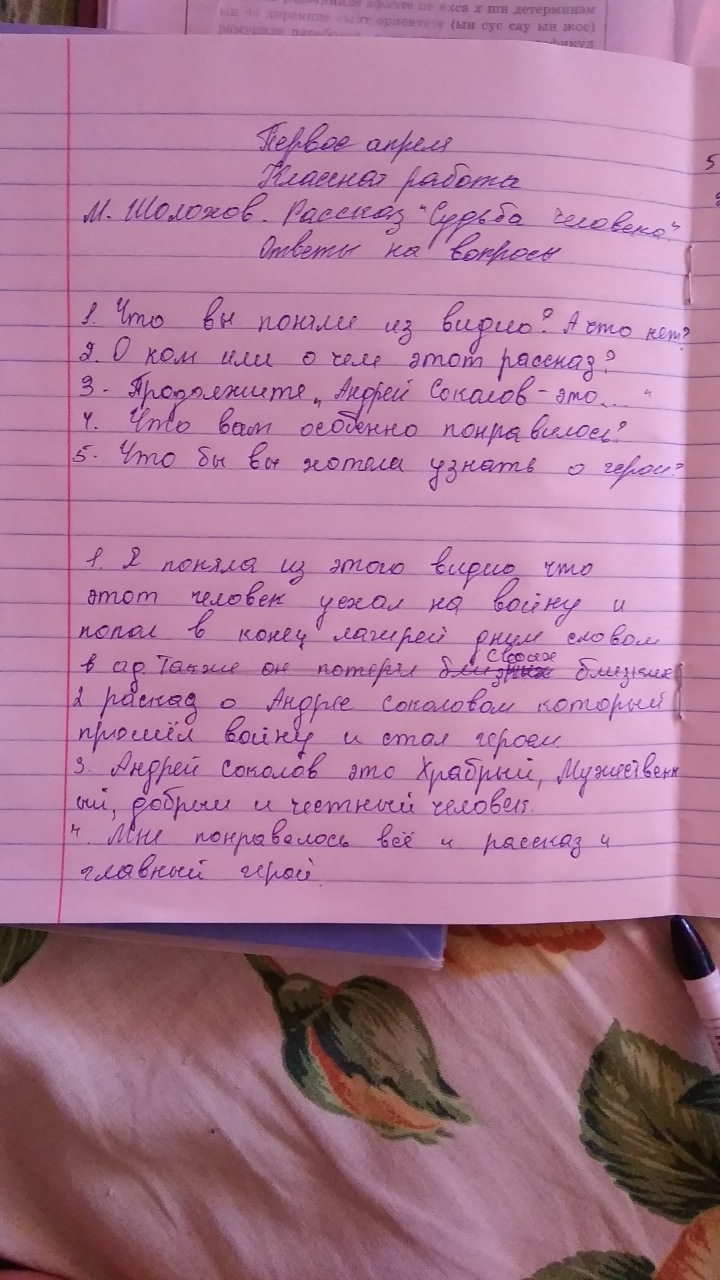 ын ло дирекцие сылт ориентатэ (ын сус сау ын жос)
Первое апреля
Классная работа
М. Шолохов. Рассказ "Судьба человека"
Ответы на вопросы
1. Что вы поняли из видио? А что нет?
2. О ком или о чем этот рассказ?
3. Продолжите "Андрей Соколов - это... "
4. Что вам особенно понравилось?
5. Что бы вы хотели узнать о герои?
1. Я поняла из этого видио что
этот человек уехал на войну и
попал в конец лагирей дним словом
в ад. Также он потерял своих близких
2 раскад о Андрее Соколовом который
прошёл войну и стал героем
3. Андрей Соколов это Храбрый, Мужественн
ый, добрый и честный человек.
4. Мне понравелось всё и рассказ и
главный герой.
5